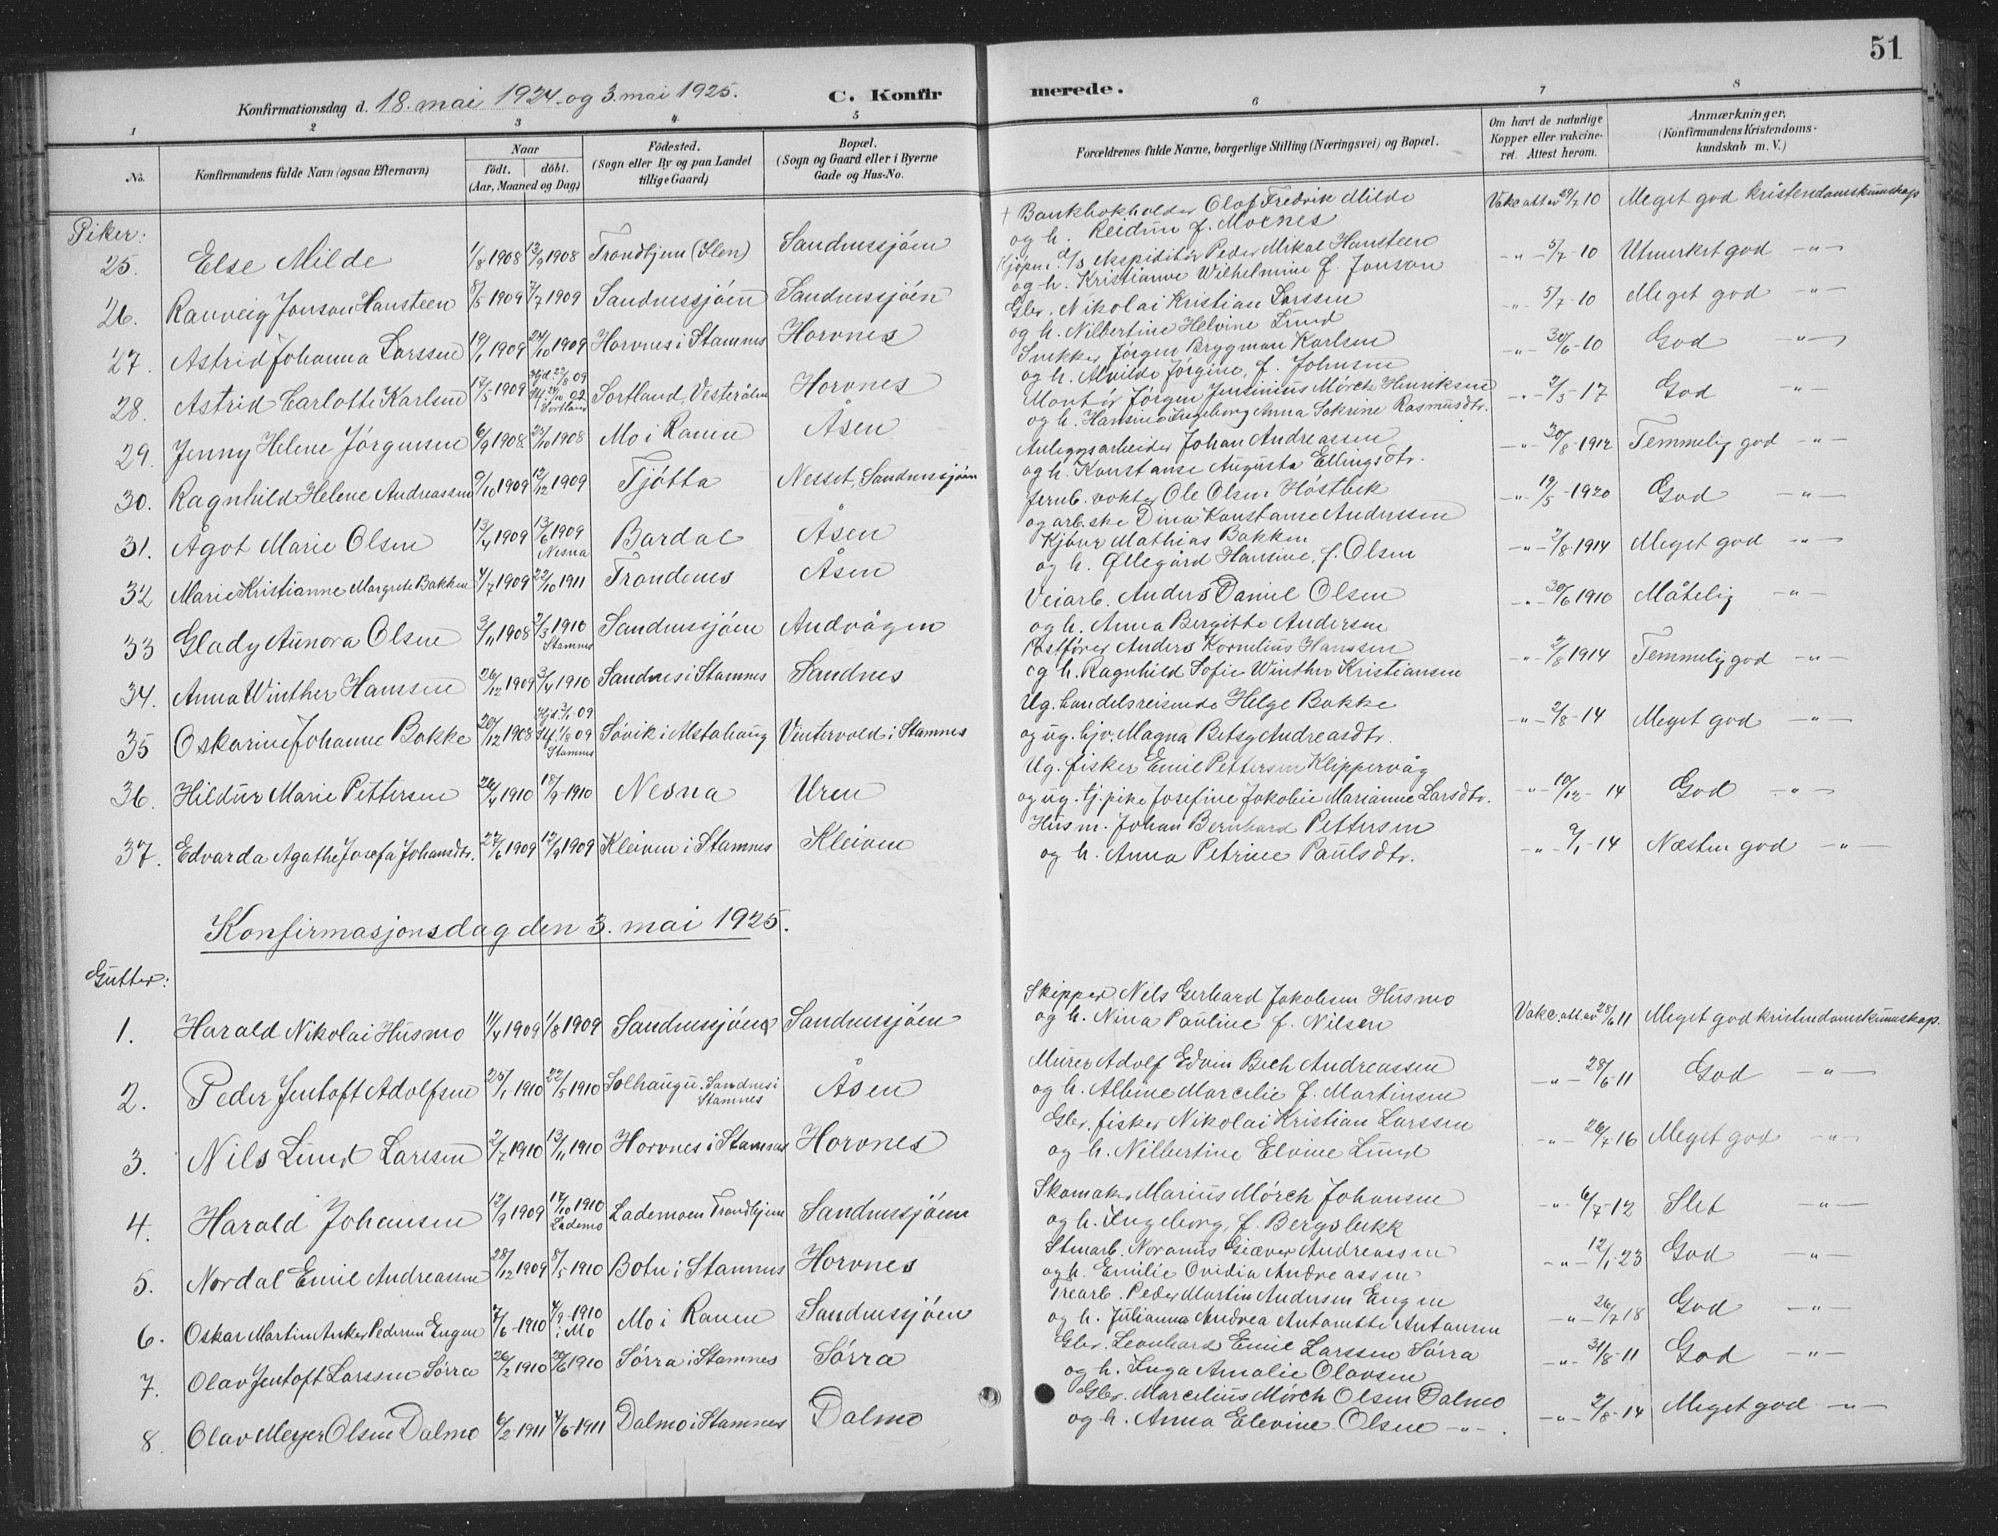 51
Konfirmationsdag d. 18. mai 1924 og 3. mai 1925. C. Konfirmerede.
1 2 3 4 5 6 7 8
No. Konfirmandens fulde Navn (ogsaa Efternavn) Naar født. døbt. (Aar, Maaned og Dag) Fødested. (Sogn eller By og paa Landet tillige Gaard) Bopæl. (Sogn og Gaard eller i Byerne Gade og Hus-No. Forældrenes fulde Navne, borgerlige Stilling (Næringsvei) og Bopæl. Om havt de naturlige Kopper eller vakcineret. Attest herom. Anmærkninger. (Konfirmandens Kristendomskundskab m. V.)
Piker:
25. Else Milde 1/8 1908 13/9 1908 Trondhjem (Ilen) Sandnessjøen + Bankbokholder Olaf Fredrik Milde og h. Reidun f. Moenes Vakc. att. av 29/7 10 Meget god kristendomskunnskap
26. Ranveig Jonson Hansteen 8/5 1909 4/7 1909 Sandnessjøen Sandnessjøen Kjøpm. a/s ekspeditør Peder Mikal Hansteen og h. Kristianne Wilhelmine f. Jonson -"- 5/7-10 Utmerket god -"-
27. Astrid Johanna Larssen 19/1 1909 24/10 1909 Horvnes i Stamnes Horvnes Gbr. Nikolai Kristian Larssen og h. Nilbertine Helvine Lund -"- 5/7-10 Meget god -"-
28. Astrid Carlotte Karlsen 17/5 1909 Hjd. 22/8 09 Sortland Sortland, Vesterålen Horvnes Snekker Jørgen Brygman Karlsen og h. Alvilde Jørgine, f. Johnsen -"- 30/6-10 God -"-
29. Jenny Helene Jørgensen 6/9 1908 25/10 1908 Mo i Ranen Åsen Montør Jørgen Jentinius Mørch Henriksen og h. Hansine Ingeborg Anna Sakrine Rasmusdtr. -"- 2/5-17 God -"-
30. Ragnhild Helene Andreassen 9/10 1909 12/12 1909 Tjøtta Nesset, Sandnessjøen Anleggsarbeider Johan Andreassen og h. Konstanse Augusta Ellingsdtr. -"- 30/8-1912 Temmelig god -"-
31. Ågot Marie Olsen 13/4 1909 13/6 1909 Nesna Bardal Åsen Jernb. vokter Ole Olsen Høstbek og arb.ske Dina Konstanse Anderssen -"- 19/5-1920 God -"-
32 Marie Kristianne Margrete Bakken 4/7 1909 22/10 1911 Trondenes Åsen Kjører Mathias Bakken og h. Øllegård Hansine, f. Olsen -"- 2/8-1914 Meget god -"-
33 Glady Aunora Olsen 3/11 1908 2/5 1910 Stamnes Sandnessjøen Andvågen Veiarb. Anders Daniel Olsen og h. Anna Bergitte Andersen -"- 30/6 1910 Måtelig -"-
34. Anna Winther Hanssen 26/12 1909 3/4 1910 Sandnes i Stamnes Sandnes Postfører Anders Kornelius Hanssen og h. Ragnhild Sofie Winther Kristiansen -"- 2/8 1914 Temmelig god -"-
35 Oskarine Johanne Bakke 20/12 1908 Hjd. 3/1 09 St. 1/8 09 Stamnes Søvik i Alstahaug Vintervold i Stamnes Ug. handelsreisende Helge Bakke og ug. hjv. Magna Betsy Andreasdtr. -"- 2/8-14 Meget god -"-
36. Hildur Marie Pettersen 26/4 1910 18/9-1910 Nesna Uren Ug. fisker Emil Pettersen Klippervåg og ug. tj.pike Josefine Jakobie Marianne Larsdtr. -"- 10/12-14 God -"-
37. Edvarda Agathe Josefa Johansdtr. 27/6 1909 12/9 1909 Kleiven i Stamnes Kleiven Husm. Johan Bernhard Pettersen og h. Anna Petrine Paulsdtr. -"- 9/1-14 Næsten god -"-
Konfirmasjonsdag den 3. mai 1925.
Gutter:
1. Harald Nikolai Husmo 11/4 1909 1/8 1909 Sandnessjøen Sandnessjøen Skipper Nils Gerhard Jakobsen Husmo og h. Nina Pauline f. Nilsen Vakc. att. av 28/6 11 Meget god kristendomskunnskap.
2. Peder Jentoft Adolfsen 25/1 1910 22/5 1910 Solhaugen. Sandnes i Stamnes Åsen Murer Adolf Edvin Bech Andreassen og h. Albine Marcelie f. Martinsen -"- 28/6-11 God -"-
3. Nils Lund Larssen 2/7 1910 13/11 1910 Horvnes i Stamnes Horvnes Gbr. fisker Nikolai Kristian Larssen og h. Nilbertine Elvine Lund -"- 26/7-16 Meget god -"-
4. Harald Johansen 12/9 1909 17/10 1910 Lademo Lademoen Trondhjem Sandnessjøen Skomaker Marius Mørch Johansen og h. Ingeborg, f. Bergsbekk -"- 6/7-12 Slet -"-
5. Nordal Emil Andreassen 28/12 1909 8/5 1910 Botn i Stamnes Horvnes Stenarb. Noranus Giæver Andreassen og h. Emilie Ovidia Andreassen -"- 12/1-23 God -"-
6. Oskar Martin Anker Pedersen Engen 7/6-1910 4/9-1910 i Mo Mo i Ranen Sandnessjøen Trearb. Peder Martin Andersen Engen og h. Julianna Andrea Antonette Antonsen -"- 26/7 18 God -"-
7. Olav Jentoft Larssen Sørra 26/2 1910 1910 Sørra i Stamnes Sørra Gbr. Leonhard Emil Larssen Sørra og h. Inga Amalie Olavsen -"- 31/8-11 God -"-
8. Olav Meyer Olsen Dalmo 6/2 1911 4/6-1911 Dalmo i Stamnes Dalmo Gbr. Marcelius Mørch Olsen Dalmo og h. Anna Elevine Olsen -"-. -"- 2/8-14 Meget god -"-